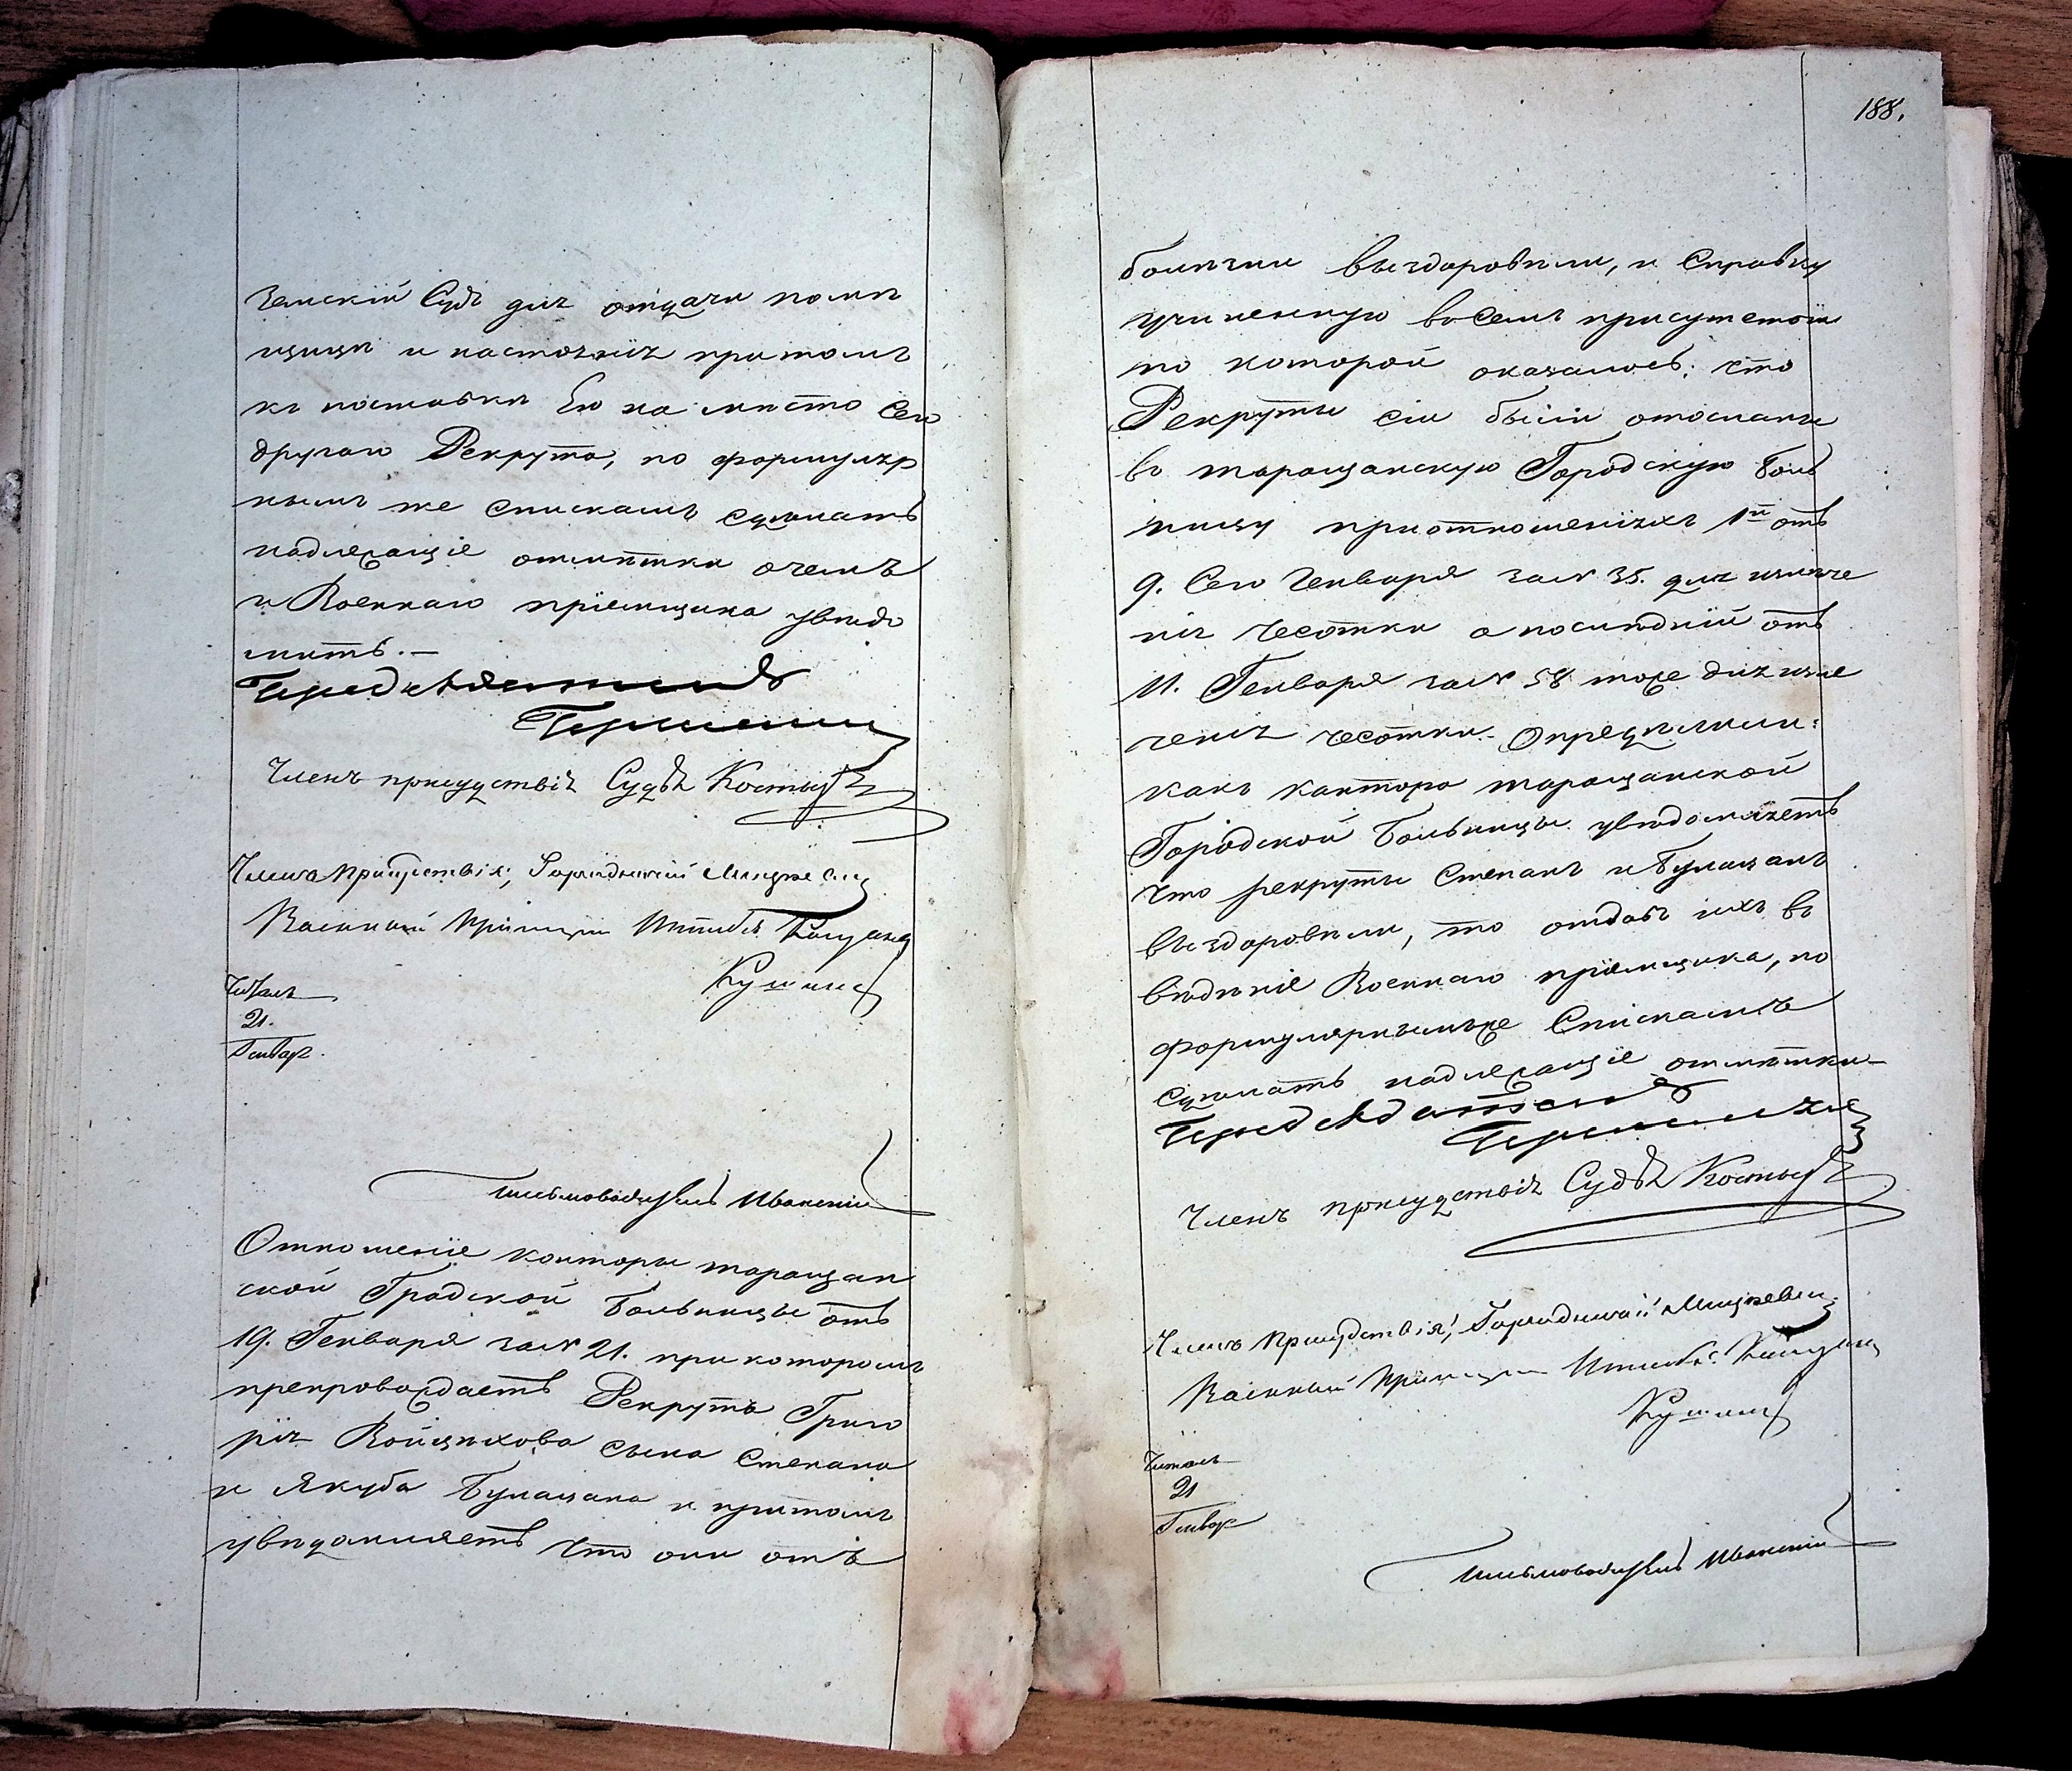 Земскій Судъ для отдачи помѣ
щицѣ и настоянія притомъ
къ поставкѣ Ею на мѣсто сего
другаго Рекрута, по формуляр
нымъ же спискамъ сдѣлать
надлежащіе отмѣтки очемъ
и Военнаго пріемщика увѣдо
мить.—
Предсѣдатель
Членъ присудствія Судья
Члена Присудствія, Городничій
Военный Пріемщик Штабсъ Капитанъ
Читалъ
21.
Генвар.
письмоводитель
Отношеніе конторы таращан
ской Градской Больницы отъ
19. Генваря за № 21. при которомъ
препровождаетъ Рекрутъ Григо
рія Войцѣхова сына Степана
и Якуба Булацана и притомъ
увѣдомляетъ что они отъ
188.
болѣзни выздоровѣли, и Справку
учиненную во семъ присутствіи
по которой оказалось: что
Рекруты сіи были отосланы
въ таращанскую Городскую Боль
ницу приотношеніяхъ 1й отъ
9. Сего Генваря за № 35. для излѣче
нія чесотки а послѣдній отъ
11. Генваря за № 58 тоже для изле
ченія чесотки. Опредѣлили:
какъ кантора таращанской
Городской Больницы увѣдомляетъ
что рекруты Степанъ и Булацанъ
выздоровѣли, то отдавъ ихъ въ
вѣдѣніе Военнаго пріемщика, по
формулярнымъже Спискамъ
сдѣлать надлежащіе отмѣтки—
Предсѣдатель
Членъ присудствія Судья
Членъ Присудствія, Городничій
Военный Пріемщик Штабсъ Капитанъ
Читалъ
21
Генвар
письмоводитель